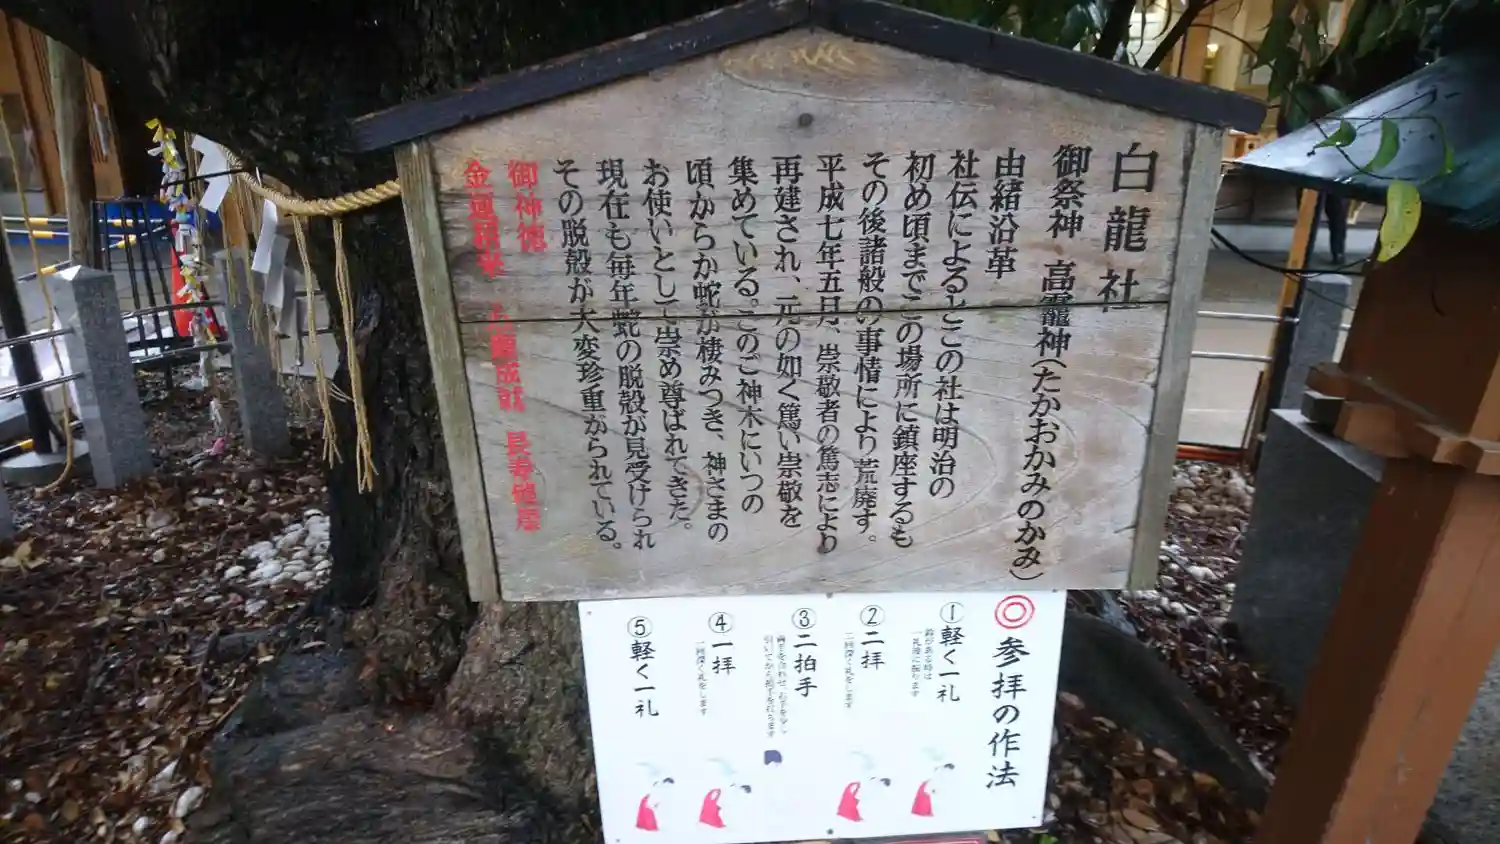 白龍社
御祭神 高龗神(たかおかみのかみ)
由緒沿革
社伝によるとこの社は明治の
初め頃までこの場所に鎮座するも
その後諸般の事情により荒廃す。
平成七年五月、崇敬者の篤志により
再建され、元の如く篤い崇敬を
集めている。このご神木にいつの
頃からか蛇が棲みつき、神さまの
お使いとして崇め尊ばれてきた。
現在も毎年蛇の脱殻が見受けられ
その脱殻が大変珍重がられている。
御神徳
金運隆昌 心願成就 長寿健康
◎参拝の作法
①軽く一礼
鈴がある時は
一礼後に振ります
②二拝
二回深く礼をします
③二拍手
④一拝
一回深く礼をします
⑤軽く一礼